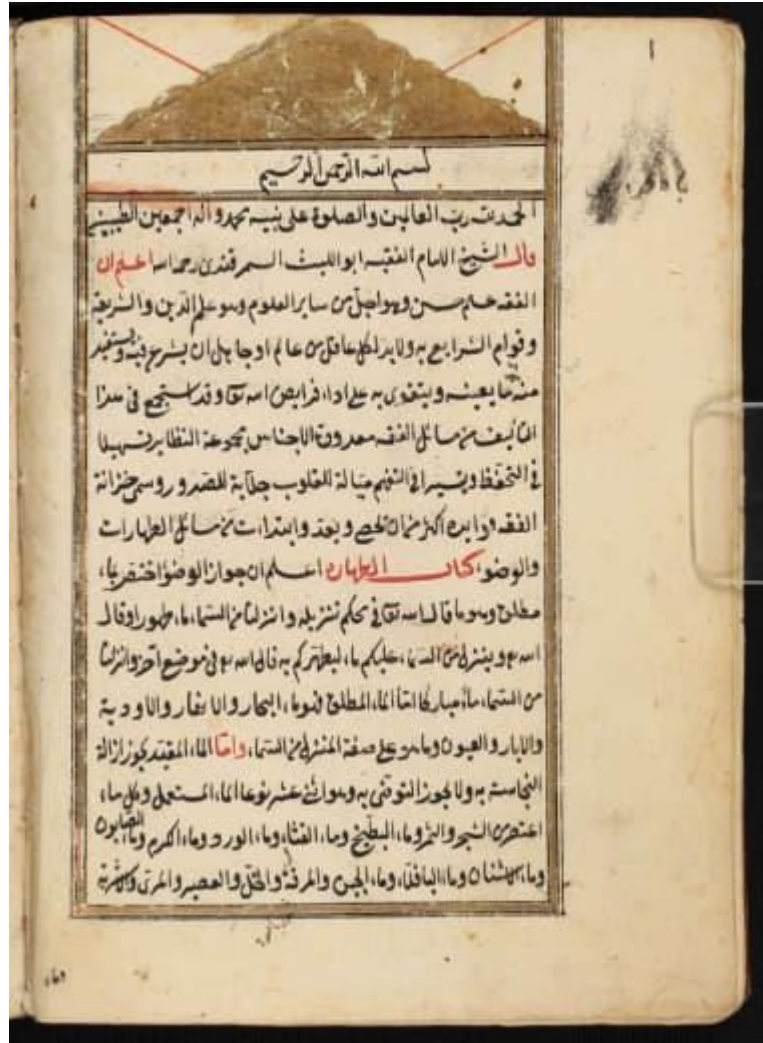 بسم الله الرحمن الرحيم
الحمد لله رب العالمين والصلوة على نبيه محمد واله اجمعين الطيبين
قال الشيخ الامام الفقيه ابو الليث السمرقندى رحمه الله اعلم ان
الفقه علم حسن وهو اجل من ساير العلوم وهو علم الدين والشريعة
وقوام الشرايع به ولا بد لكل عاقل من عالم او جاهل ان يشرع فيه ويستفيد
منه ما يعينه ويتقوى به على اداء فرايض الله تعا وقد استجمع فى هذا
التأليف من مسائل الفقه معدودة الاجناس مجموعة النظاير تسهيلا
فى التحفظ وتيسيرا فى التفهم ميالة للقلوب جلابة للصدور وسمى خزانة
الفقه وفوايده اكثر من ان تحصى وتعد وابتدات من مسائل الطهارات
والوضوء كتاب الطهاره اعلم ان جواز الوضوء اختص بماء
مطلق وهو ما قال الله تعا فى محكم تنزيله وانزلنا من السماء ماء طهورا وقال
الله تع وينزل من السماء عليكم ماء ليطهركم به قال الله تع فى موضع آخر وانزلنا
من السماء ماء مباركا الماء المطلق فهو ماء البحار والانهار والاودية
والابار والعيون وما هو على صفة المنزل من السماء واما الماء المقيد يجوز ازالة
النجاسة به ولا يجوز التوضى به وهو اثنى عشر نوعا الماء المستعمل وكل ماء
اعتصر من الشجر والثمر وماء البطيخ وماء القثاء وماء الورد وماء الكرم وماء الصابون
وماء الاشنان وماء الباقلاء وماء الجبن والمرقة والخل والعصير والمرى والاشربة
وماء